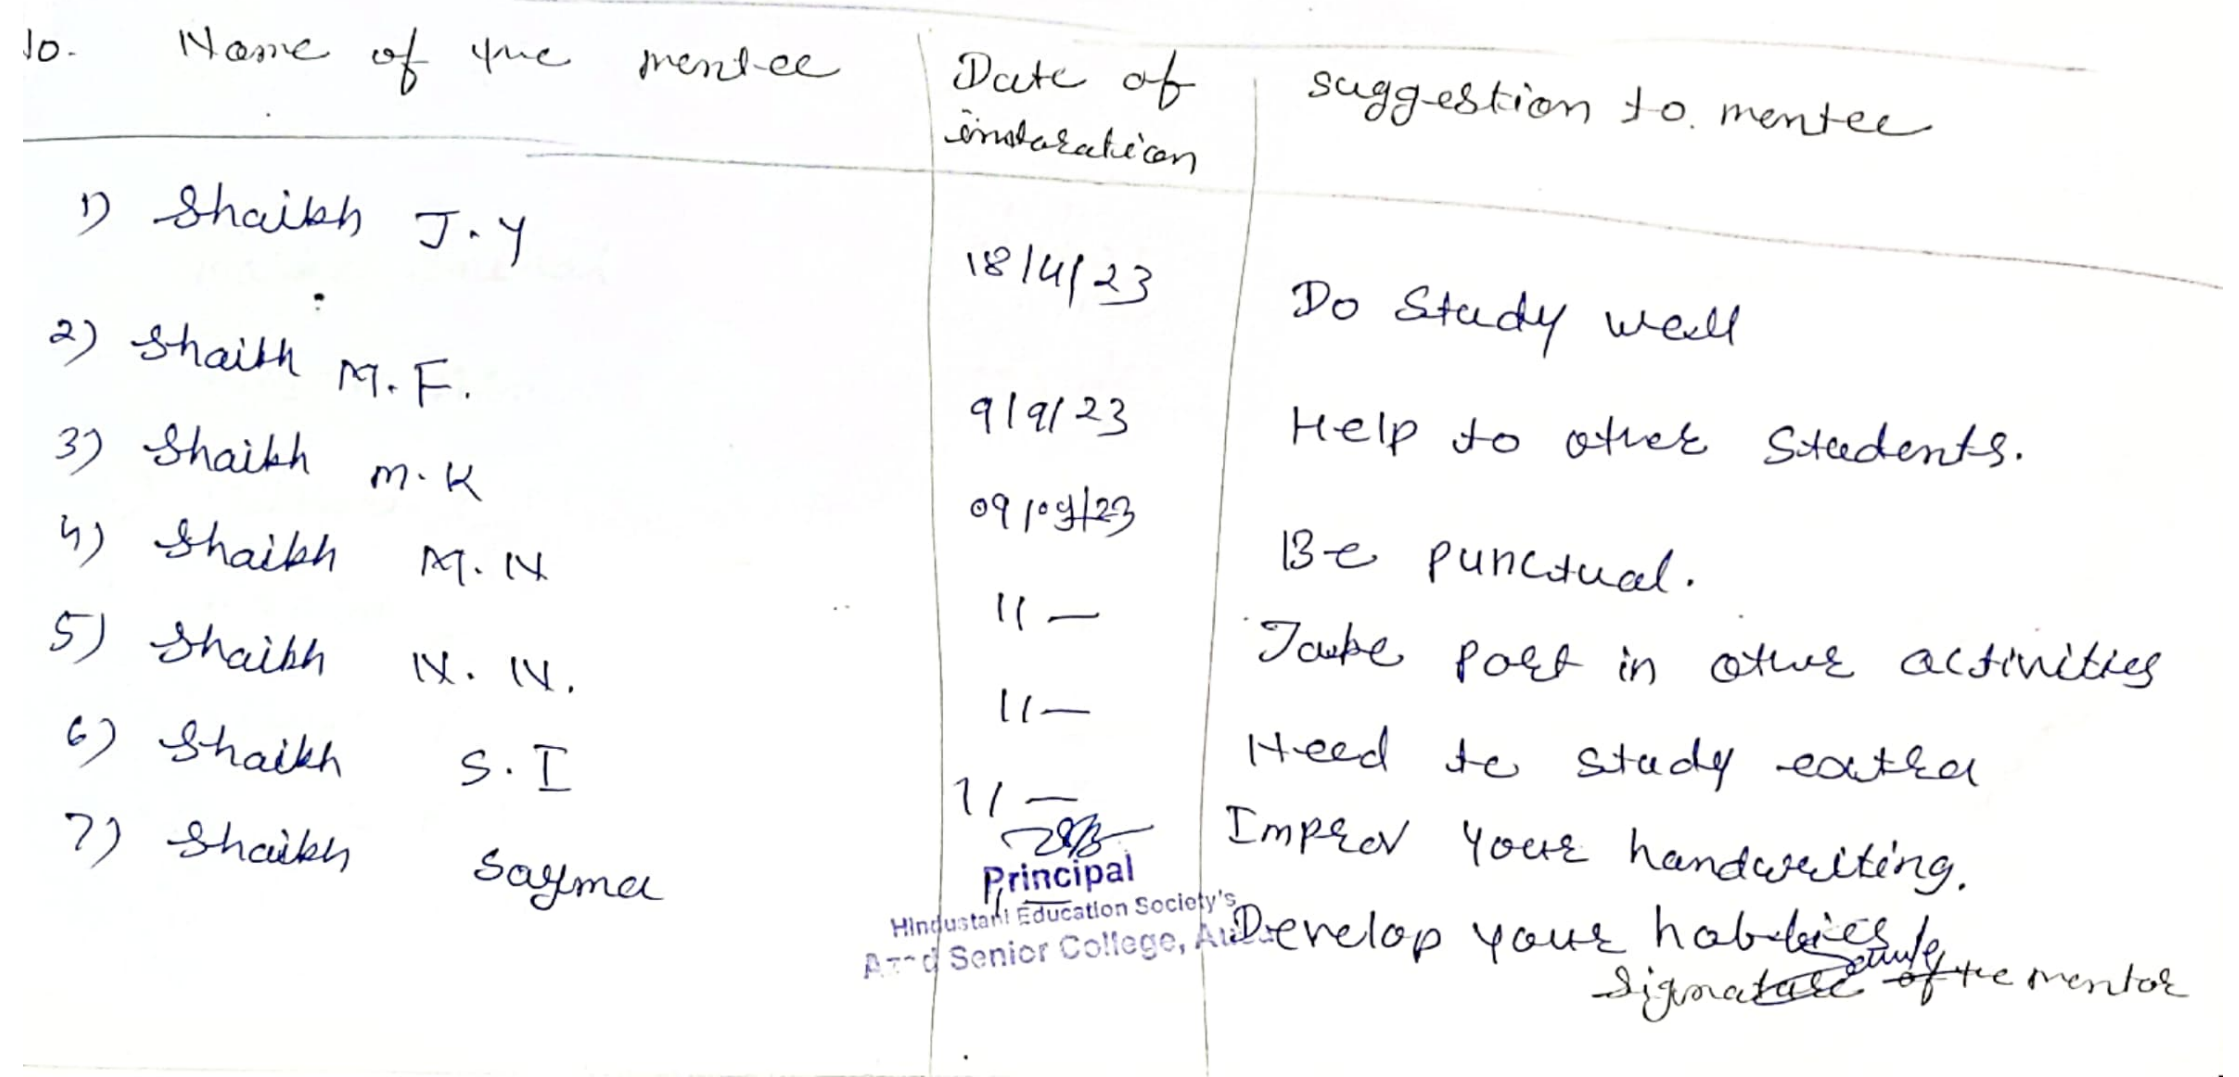 No. Name of the mentee Date of interaction suggestion to mentee
1) Shaikh J.Y 18/4/23 Do Study well
2) Shaikh M.F. 9/9/23 Help to other Students.
3) Shaikh M.K 09/09/23 Be punctual.
4) Shaikh M.N 11 — Take part in other activities
5) Shaikh N.N. 11 — Need to study extra
6) Shaikh S.I 11 — Improv your handwriting.
7) Shaikh Sayma Develop your hobbies
Principal
Hindustani Education Society's
Senior College,
Signature of the mentor